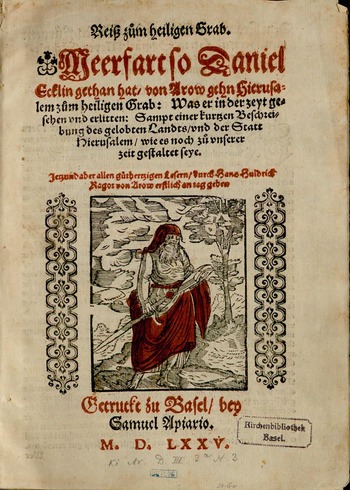 Reiß zům heiligen Grab.
Meerfart so Daniel
Ecklin gethan hat, von Arow gehn Hierusa-
lem zům heiligen Grab: Was er in der zeyt ge-
sehen vnd erlitten: Sampt einer kurtzen Beschrei-
bung des gelobten Landts/ vnd der Statt
Hierusalem/ wie es noch zů vnserer
zeit gestaltet seye.
Jetzund aber allen gůthertzigen Lesern/ durch Hans Huldrich
Ragor von Arow erstlich an tag geben
Getruckt zů Basel/ bey
Samuel Apiario.
M. D. LXXV.
Kirchenbibliothek
Basel.